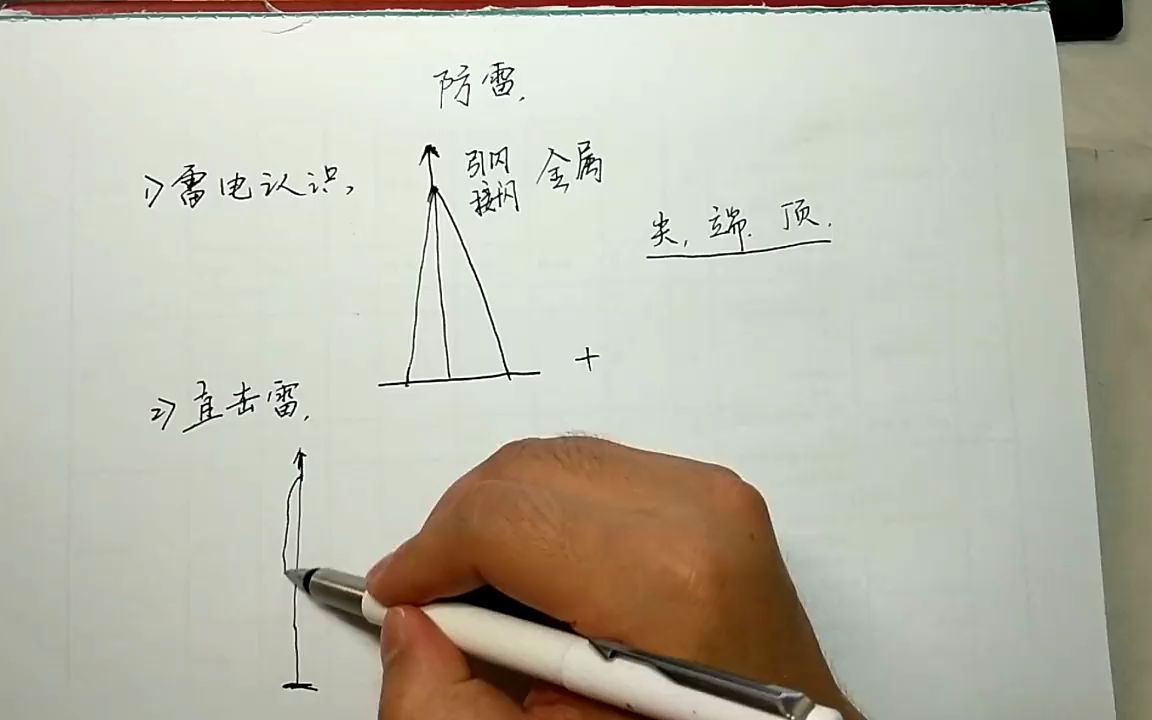 防雷.
1>雷电认识,
引闪 金属
接闪
尖, 端. 顶.
+
2>直击雷,